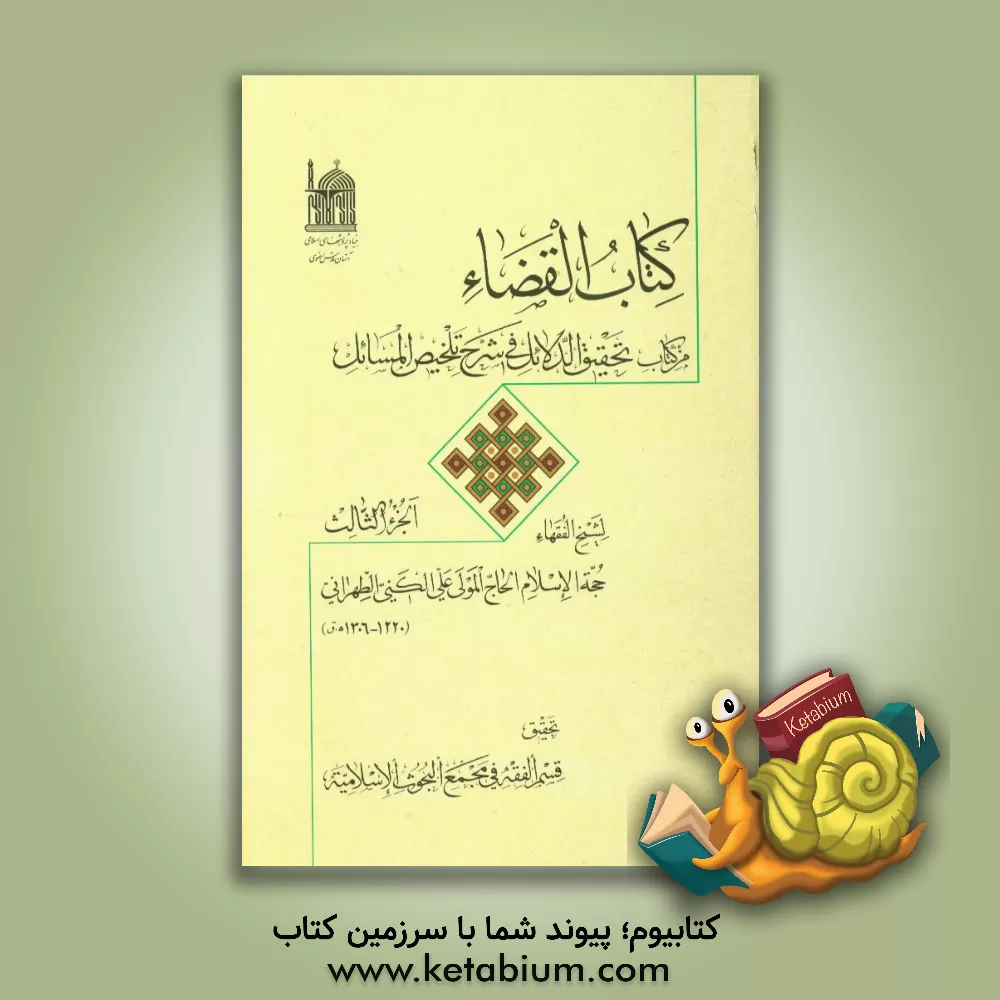 بنیاد پژوهشهای اسلامی
آستان قدس رضوی
كِتَابُ الْقَضَاءِ
من كتاب تحقيق الدّلائل في شرح تلخيص المسائل
اَلجُزءُ الثَّالِث
لشيخ الفقهاء
حُجّة الإسلام الحاجّ المَولى علي الكني الطهراني
(١٢٢٠-١٣٠٦ه‍.ق)
تحقيق
قسم الفقه في مجمع البحوث الإسلاميّة
Ketabium
کتابیوم؛ پیوند شما با سرزمین کتاب
www.ketabium.com